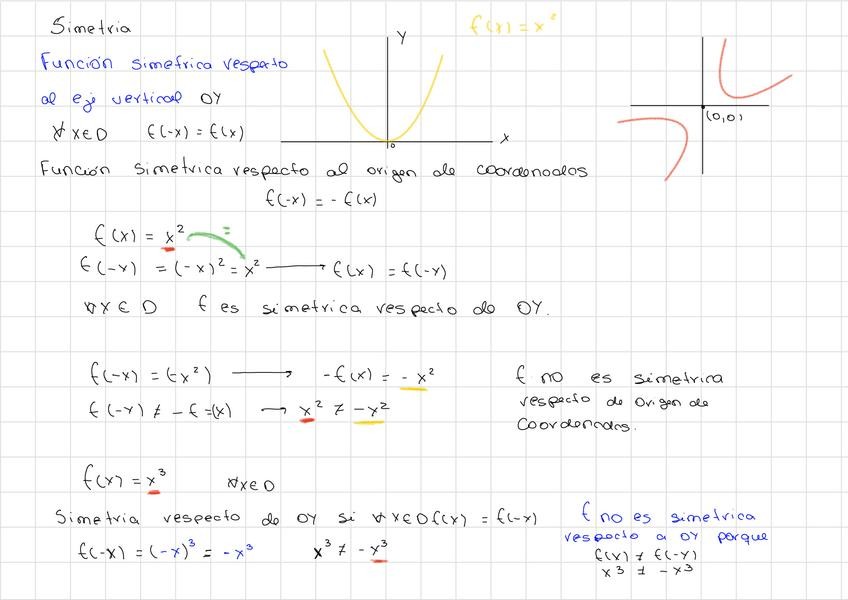 Simetria
f(x) = x²
Función simetrica respecto
al eje vertical OY
∀ x∈D f(-x) = f(x)
Y
X
0
(0,0)
Función simetrica respecto al origen de coordenados
f(-x) = - f(x)
f(x) = x²
=
f(-x) = (-x)² = x² → f(x) = f(-x)
∀x ∈ D f es simetrica respecto de OY.
f(-x) = (-x²) → -f(x) = - x²
f(-x) ≠ - f =(x) → x² ≠ -x²
f no es simetrica
respecto de origen de
coordenadas.
f(x) = x³ ∀x∈D
Simetria respecto de OY si ∀x∈D f(x) = f(-x)
f(-x) = (-x)³ = -x³ x³ ≠ -x³
f no es simetrica
respecto a OY porque
f(x) ≠ f(-x)
x³ ≠ -x³